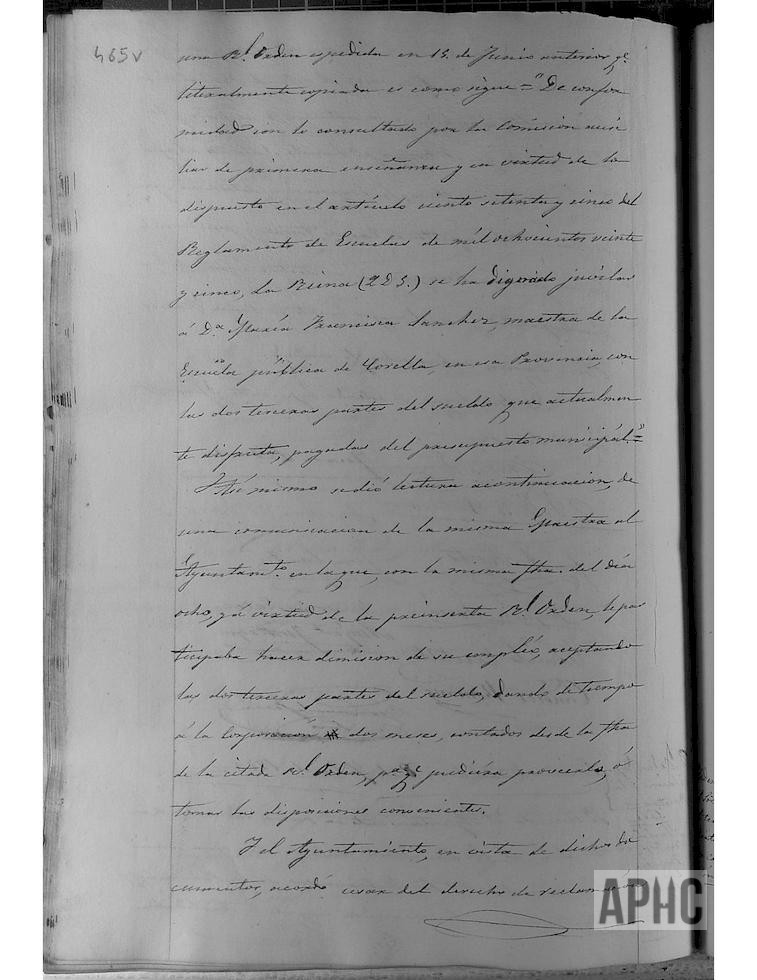 465v
una Rl. Orden espedida en 15. de Junio anterior qe.
literalmente copiada es como sigue = "De confor
midad con lo consultado por la Comision ausi
liar de primera enseñanza y en virtud de lo
dispuesto en el artículo ciento setenta y cinco del
Reglamento de Escuelas de mil ochocientos veinte
y cinco, La Reina (Q D G.) se ha dignado jubilar
á Da. María Francisca Sanchez, maestra de la
Escuela pública de Corella, en esa Provincia, con
las dos terceras partes del sueldo que actualmen
te disfruta, pagadas del presupuesto municipál" =
Asi mismo se dió lectura acontinuacion, de
una comunicacion de la misma Maestra al
Ayuntamto. en la que, con la misma fha. del día
ocho, y á virtud de la preinserta Rl. Orden, le par
ticipaba hacer dimision de su empléo, aceptando
las dos terceras partes del sueldo, dando de tiempo
á la Corporación dos meses, contados desde la fha
de la citada Rl. Orden, pa. qe. pudiéra proveerla, ó
tomar las disposiciones convenientes.
Y el Ayuntamiento, en vista de dichos do
cumentos, acordó usar del derecho de reclamación
APHC